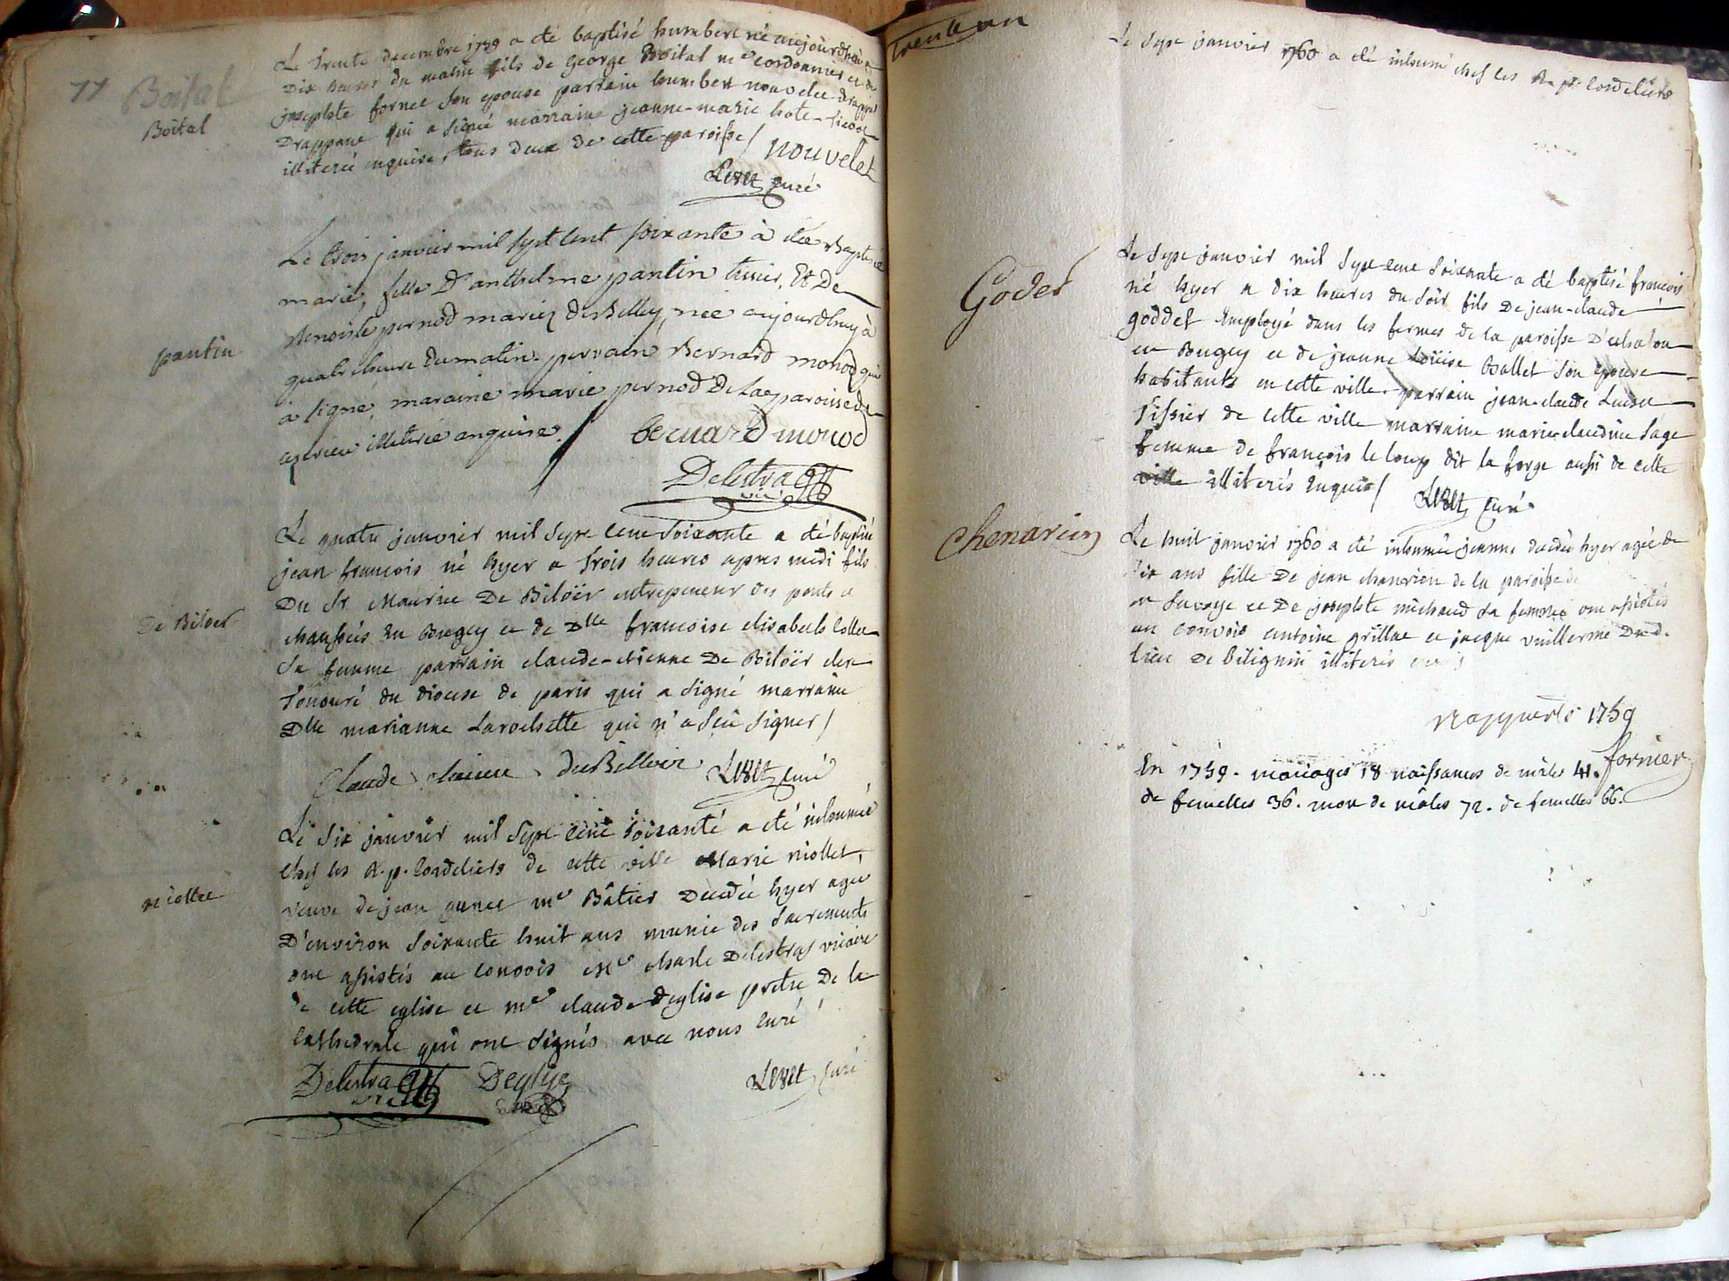 77
Boital
Boital
Le trente decembre 1759 a été baptisé humbert né aujourdhui a
dix heures du matin fils de George Boital me cordonnier et de
josephte fornee son epouse parrain humbert nouvelet
Drappane qui a signé marraine jeanne-marie
illiterée enquise, tous deux de cette paroisse / nouvelet
Levet curé
pantin
Le trois janvier mil sept cent soixante à été Baptisée
marie, fille D'anthelme pantin tissier, Et De
Benoiste pernod mariez de Belley, née aujourdhuy à
quatre heure du matin. perrain Bernard monod qui
à signé, maraine marie pernod De la paroisse de
illiterée enquise. / bernard monod
Delestra
vic.
De Biloër
Le quatre janvier mil sept cent soixante a été baptisé
jean francois né hyer a trois heures apres midi fils
Du Sr Maurice De Biloër entrepreneur des ponts et
chaussées en Bugey et de Dlle francoise elisabeth
sa femme parrain claude-etienne De Biloër clerc
tonsuré du diocese de paris qui a signé marraine
Dlle marianne Larochette qui n'a sçu signer /
Claude etienne deBilloër Levet curé
niollet
Le six janvier mil sept cent soixante a été inhumée
chez les R. p. Cordeliers de cette ville Marie niollet,
veuve de jean me Bâtier Decedée hyer agée
D'environ soixante huit ans munie des sacrements
ont assistés au convois Mre charle Delestraz vicaire
de cette eglise et mre claude deglise pretre De la
Cathedrale qui ont signés avec nous curé
Delestra Deglise Levet curé
vic.
trente un
Le sept janvier 1760 a été inhumé chez les R. pp. Cordeliers
Godet
Le sept janvier mil sept cent soixante a été baptisé francois
né hyer a dix heures du soir fils De jean-claude
goddet Employé dans les fermes de la paroisse D'
en Bugey et de jeanne Loüise Ballet son epouse
habitants en cette ville. parrain jean-claude
tissier de cette ville marraine marie claudine Sage
femme de françois le loup dit la forge aussi de cette
ville illiterés Enquis / Levet curé
Chenarien
Le huit janvier 1760 a été inhumée jeanne decedée hyer agée de
dix ans fille De jean chenrieu de la paroisse de
en Savoye et De josephte michaud sa femme ont assistés
au convois antoine grillat et jacque vuillerme Dud.
lieu De Bilignin illiterés
rapporté 1759
fornier
En 1759. mariages 18 naissances de mâles 41.
de femelles 36. mort de mâles 72. de femelles 66.